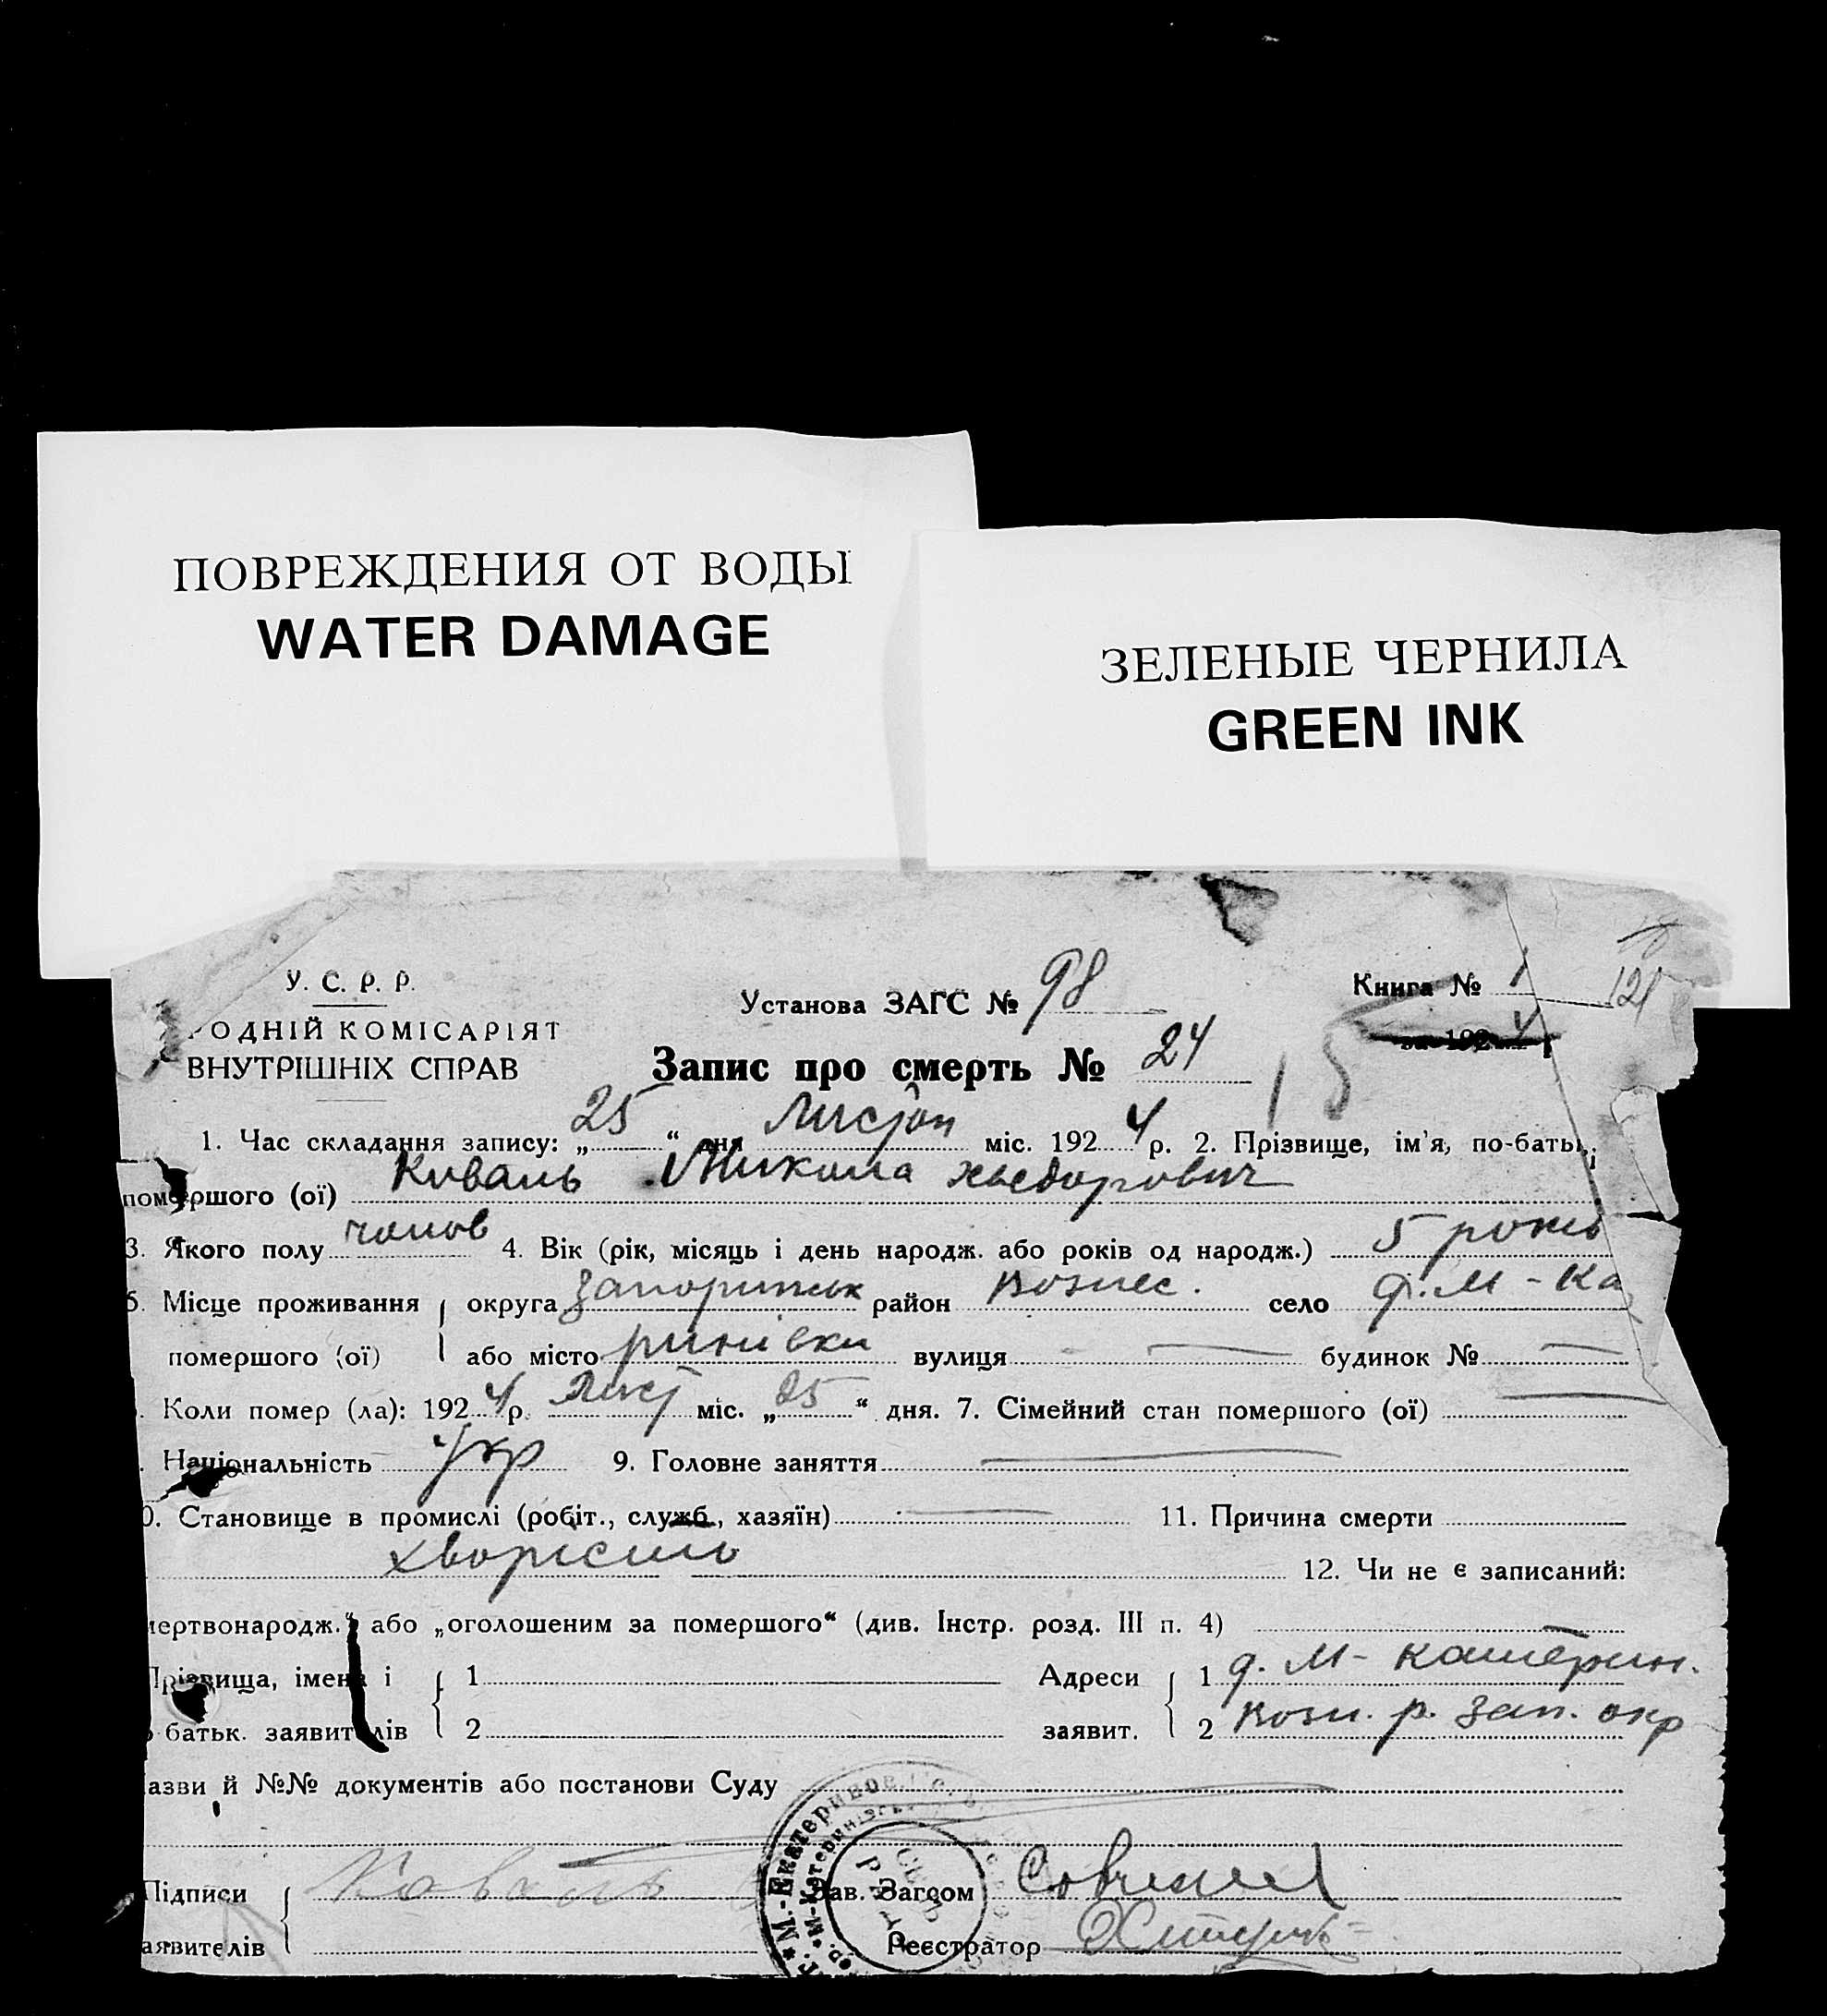 ПОВРЕЖДЕНИЯ ОТ ВОДЫ
WATER DAMAGE
ЗЕЛЕНЫЕ ЧЕРНИЛА
GREEN INK
У. С. Р. Р.
РОДНІЙ КОМІСАРІЯТ
ВНУТРІШНІХ СПРАВ
Установа ЗАГС № 98
Книга № 1 121
за 1924 р
Запис про смерть № 24
15
1. Час складання запису: „25“ дня міс. 1924 р. 2. Прізвище, ім'я, по-батьк.
помершого (ої) Коваль Микола хведорович
3. Якого полу чолов 4. Вік (рік, місяць і день народж. або років од народж.) 5 років
5. Місце проживання округа Запорижськ район Вознес. село д. М - Ка
помершого (ої) або місто ринівки вулиця — будинок № —
Коли помер (ла): 1924 р. Лист міс. „25“ дня. 7. Сімейний стан помершого (ої) —
Національність Укр 9. Головне заняття —
0. Становище в промислі (робіт., служб., хазяїн) — 11. Причина смерти
хворість 12. Чи не є записаний:
мертвонародж.“ або „оголошеним за помершого“ (див. Інстр. розд. III п. 4) —
Прізвища, імена і 1 Адреси 1 д. М - Катерин.
батьк. заявителів 2 заявит. 2 Возн. р. Зап. окр
азви й №№ документів або постанови Суду —
Підписи Коваль Зав. Загсом
аявителів Реєстратор
М.-Екатериновс
М-Катеринівсь
СІЛЬ
РАДА